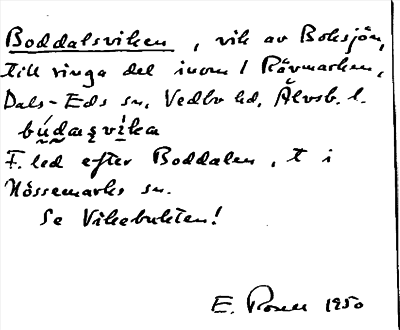 Boddalsviken, vik av Boksjön,
till ringa del inom 1 Rävmarken,
Dals-Eds sn, Vedbo hd, Älvsb. l.
búdaşvìka
F. led efter Boddalen, t i
Nössemarks sn.
Se Vikebukten!
E. Rosell 1950